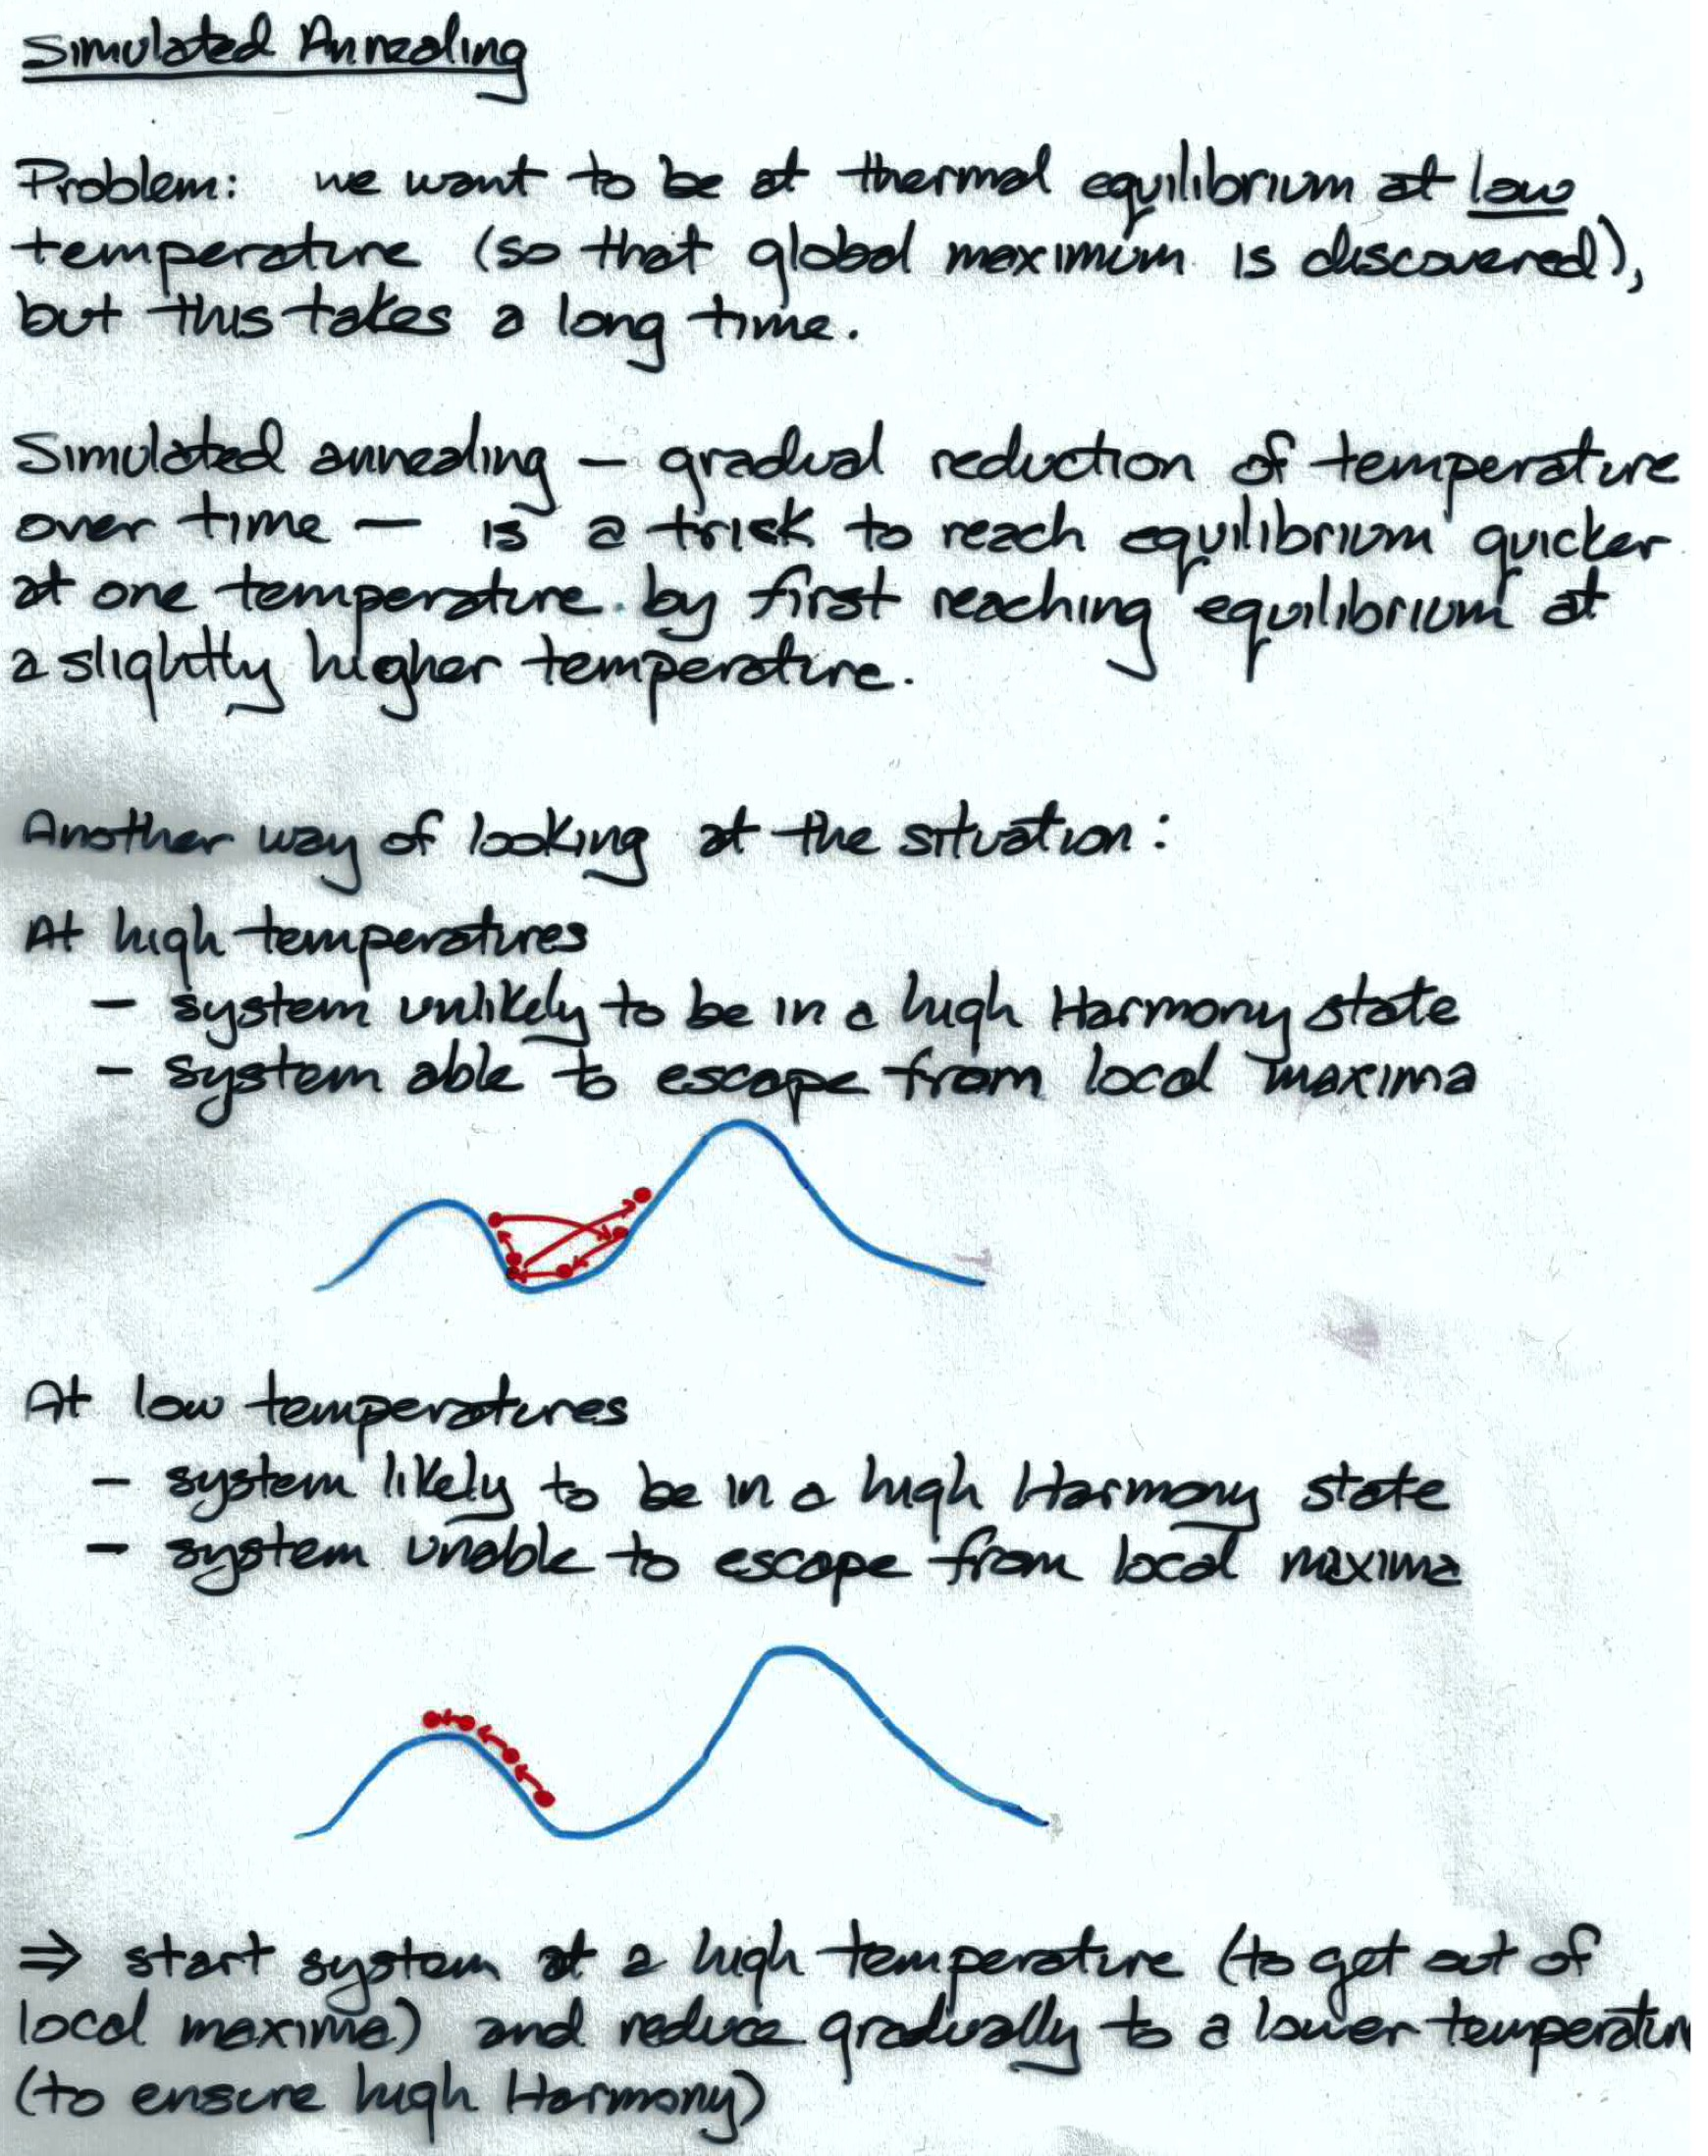 Simulated Annealing
Problem: we want to be at thermal equilibrium at low
temperature (so that global maximum is discovered),
but this takes a long time.
Simulated annealing — gradual reduction of temperature
over time — is a trick to reach equilibrium quicker
at one temperature by first reaching equilibrium at
a slightly higher temperature.
Another way of looking at the situation:
At high temperatures
– system unlikely to be in a high Harmony state
– system able to escape from local maxima
At low temperatures
– system likely to be in a high Harmony state
– system unable to escape from local maxima
⇒ start system at a high temperature (to get out of
local maxima) and reduce gradually to a lower temperatur
(to ensure high Harmony)